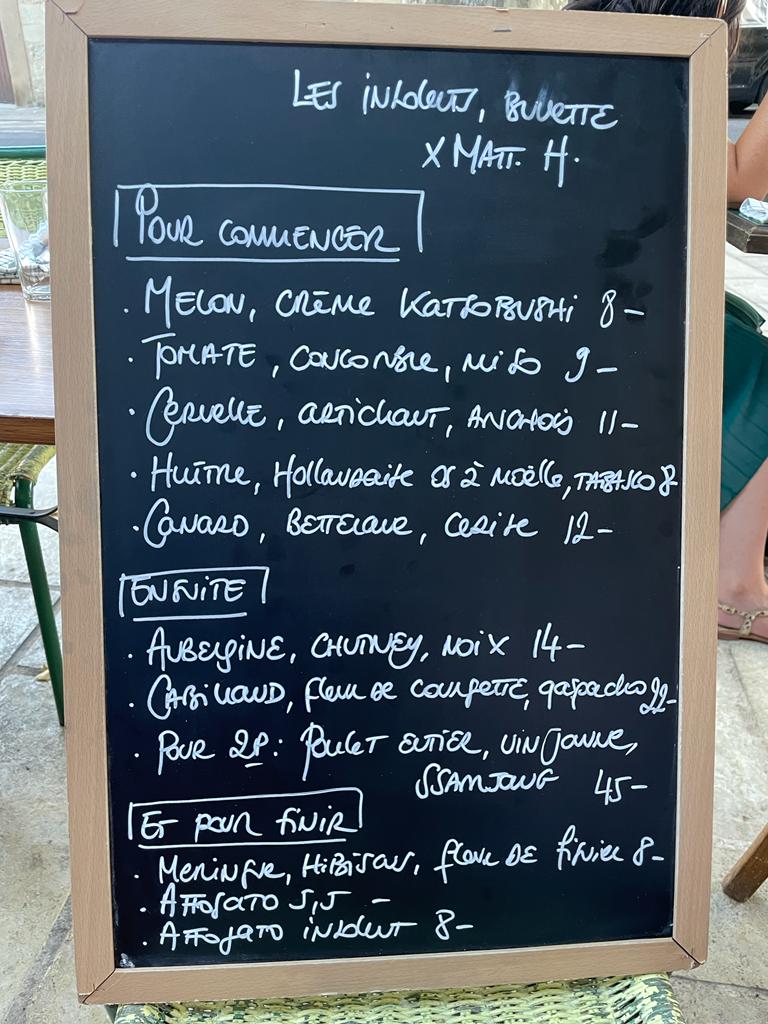 Les insolents, Buvette
x Matt. H.
Pour commencer
· Melon, crème Katsobushi 8-
· Tomate, concombre, miso 9-
· Cervelle, artichaut, anchois 11-
· Huître, Hollandaise os à moëlle, tabasco 8-
· Canard, Betterave, cerise 12-
Ensuite
· Aubergine, chutney, noix 14-
· Cabillaud, fleur de courgette, gaspacho 22-
· Pour 2P: Poulet entier, vin jaune,
Ssamjang 45-
Et pour finir
· Meringue, Hibiscus, fleur de 8-
· Affogato 5,5 -
· Affogato insolent 8-